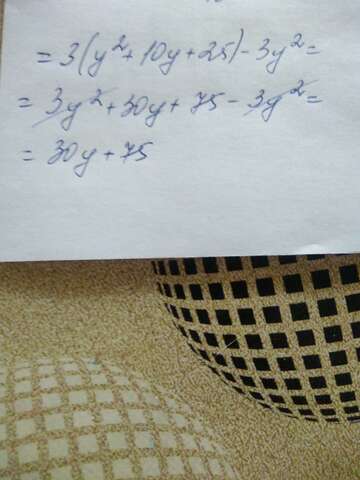 = 3(y²+10y+25)-3y²=
= 3y²+30y+75-3y²=
= 30y+75